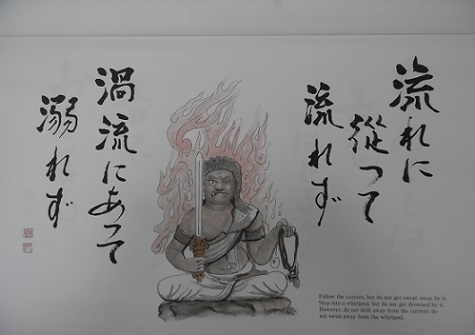 流れに
從つて
流れず
渦流にあつて
溺れず
Follow the current, but do not get swept away by it.
Step into a whirlpool, but do not get drowned by it.
However, do not drift away from the current, do
not swim away from the whirlpool.